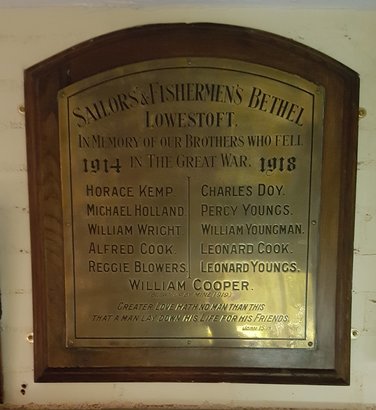 SAILORS' & FISHERMEN'S BETHEL
LOWESTOFT.
IN MEMORY OF OUR BROTHERS WHO FELL
1914 IN THE GREAT WAR. 1918
HORACE KEMP. CHARLES DOY.
MICHAEL HOLLAND. PERCY YOUNGS.
WILLIAM WRIGHT. WILLIAM YOUNGMAN.
ALFRED COOK. LEONARD COOK.
REGGIE BLOWERS. LEONARD YOUNGS.
WILLIAM COOPER.
MINE 1919
GREATER LOVE HATH NO MAN THAN THIS
THAT A MAN LAY DOWN HIS LIFE FOR HIS FRIENDS.
JOHN 15.13